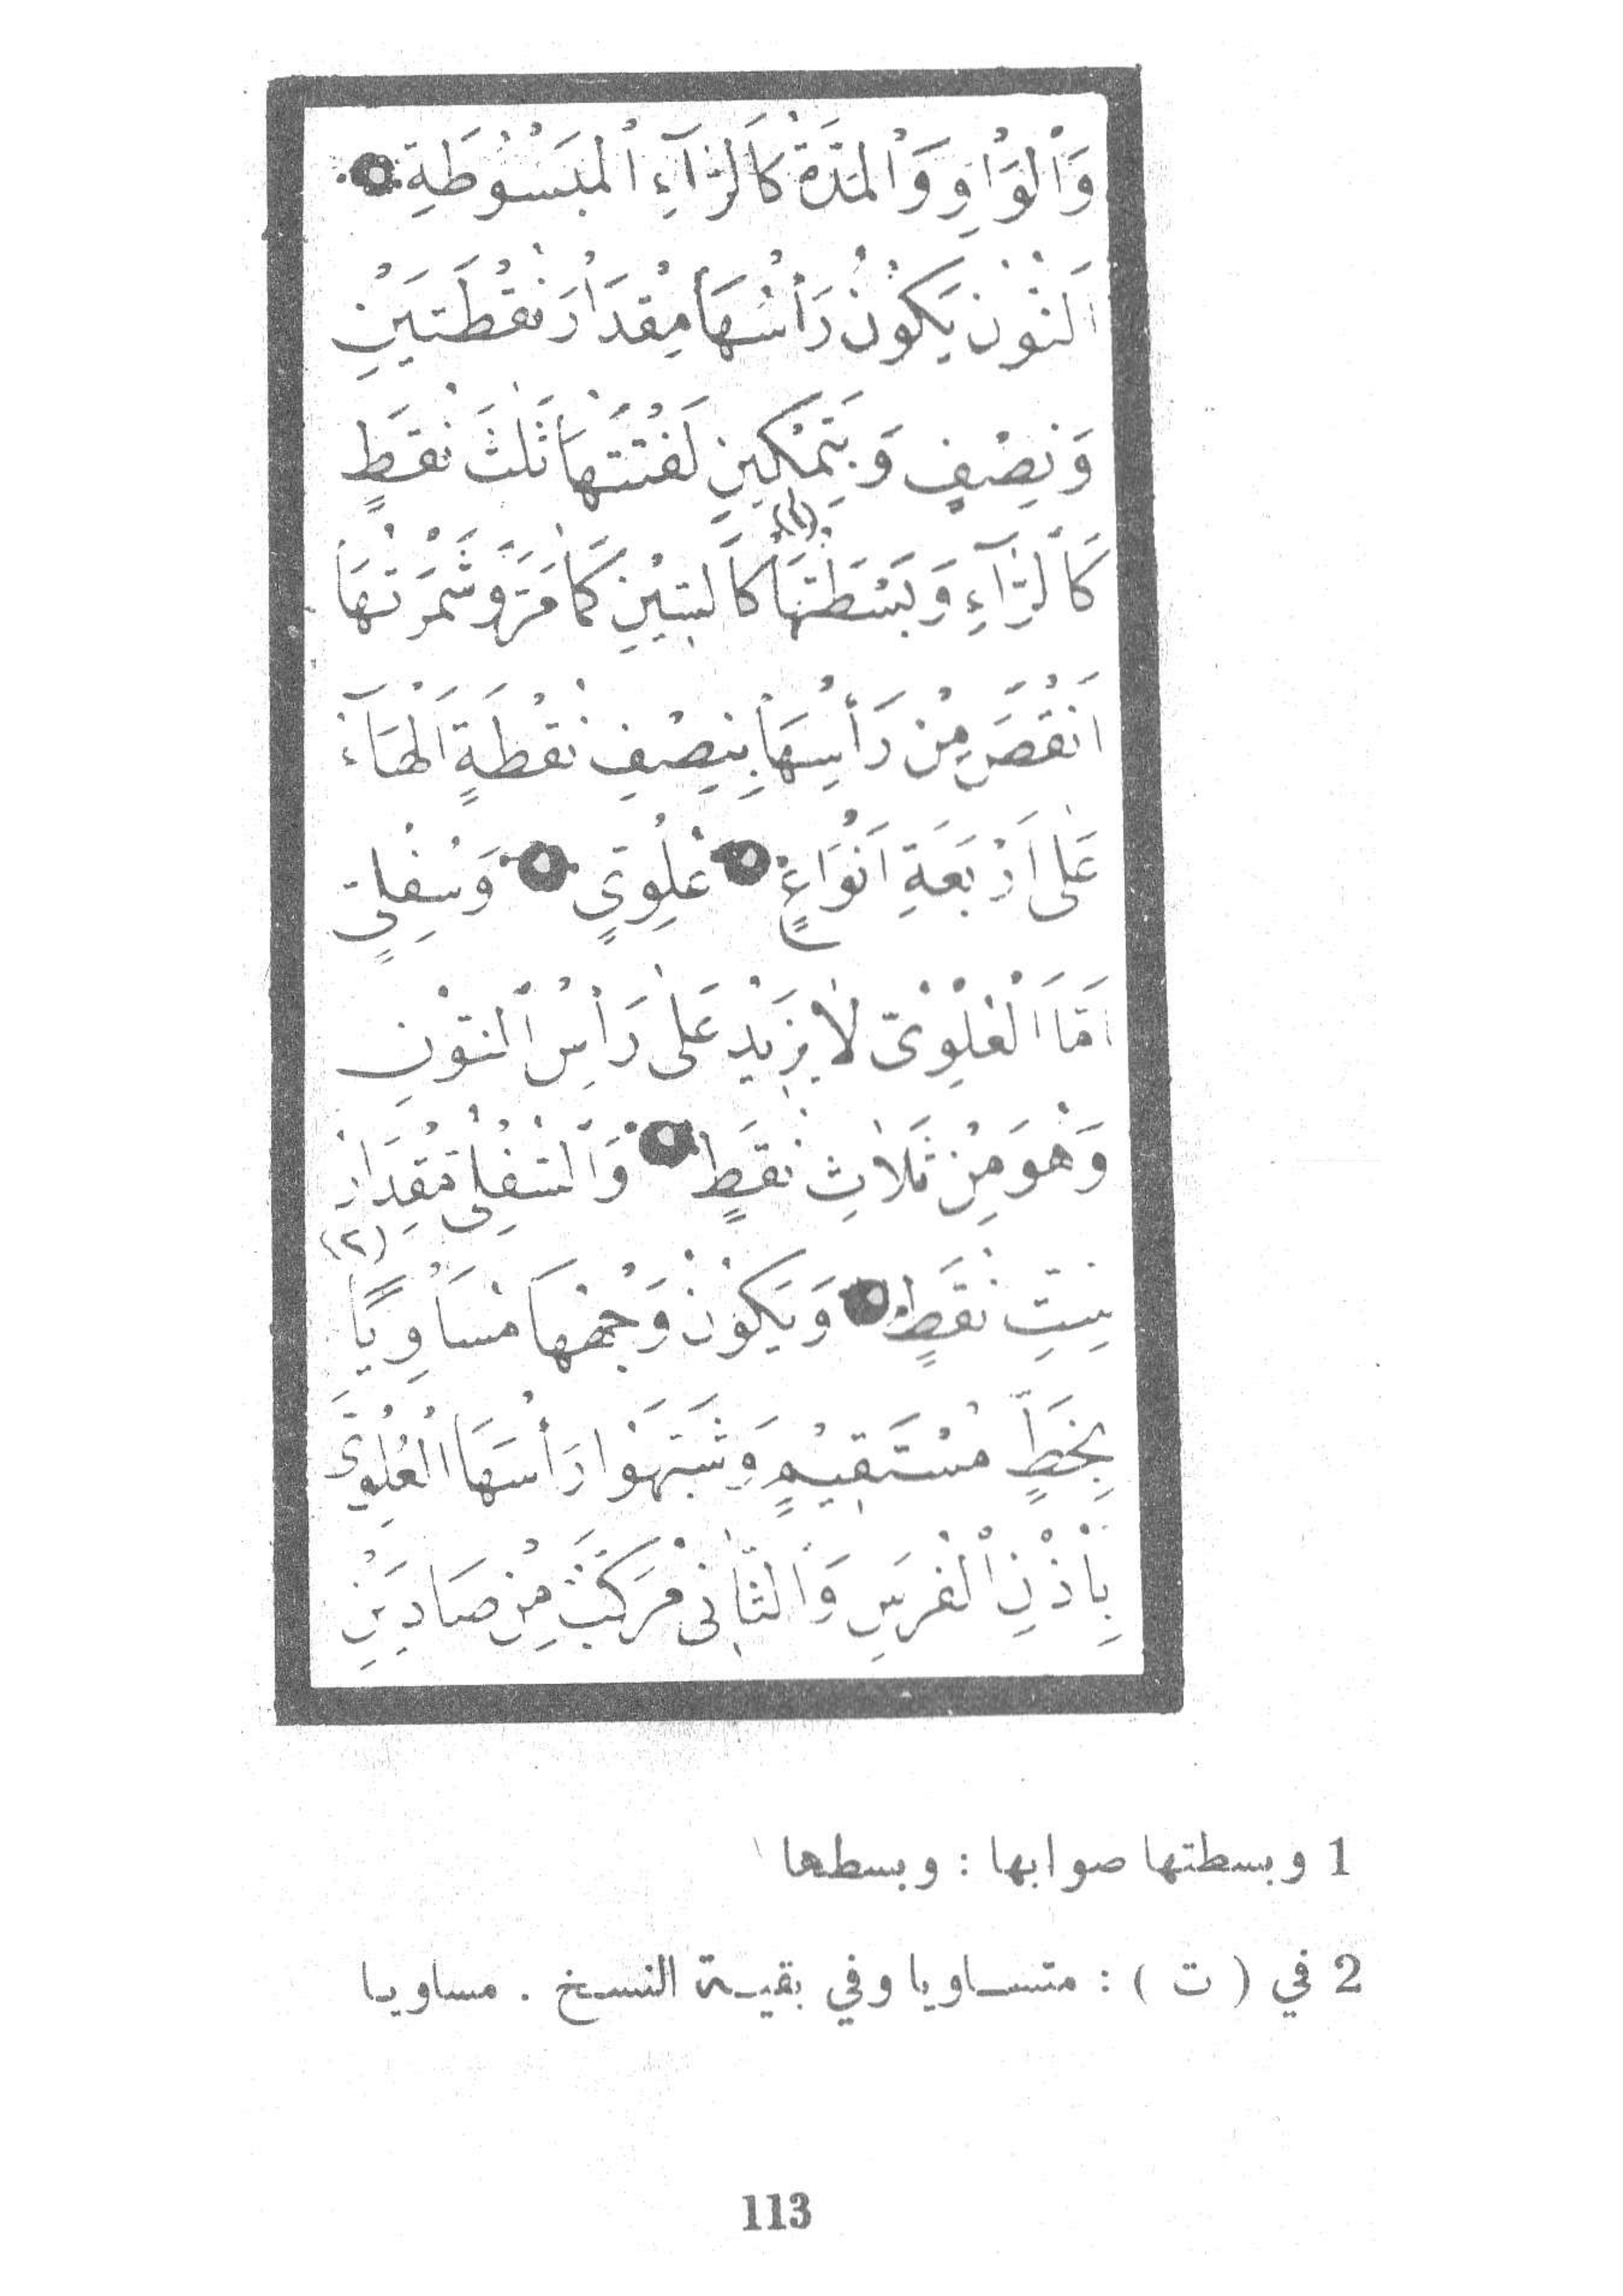 وَالْوَاوِ وَالْمَدَّةُ كَالرَّآءِ الْمَبْسُوطَةِ
اَلنُّونُ يَكُونُ رَأْسُهَا مِقْدَارَ نُقْطَتَيْنِ
وَنِصْفٍ وَبِتَمْكِينِ لَفْتَتِهَا ثَلٰثَ نُقَطٍ
كَالرَّآءِ وَبَسْطَتُهَا (١) كَالسِّينِ كَمَا مَرَّ وَشَمْرَتُهَا
اَنْقَصَ مِنْ رَأْسِهَا بِنِصْفِ نُقْطَةٍ اَلْهَآءُ
عَلٰى اَرْبَعَةِ اَنْوَاعٍ عُلْوِيٍّ وَسُفْلِيٍّ
اَمَّا الْعُلْوِيُّ لَا يَزِيدُ عَلٰى رَأْسِ النُّونِ
وَهُوَ مِنْ ثَلَاثِ نُقَطٍ وَالسُّفْلِي مِقْدَارُ
سِتِّ نُقَطٍ وَيَكُونُ وَجْهُهَا مُسَاوِيًا (٢)
بِخَطٍّ مُسْتَقِيمٍ وَشَبَّهُوا رَأْسَهَا الْعُلْوِيَّ
بِأُذْنِ الْفَرَسِ وَالثَّانِي مُرَكَّبٌ مِنْ صَادَيْنِ
1 وبسطتها صوابها : وبسطها
2 في ( ت ) : متساويا وفي بقية النسخ . مساويا
113